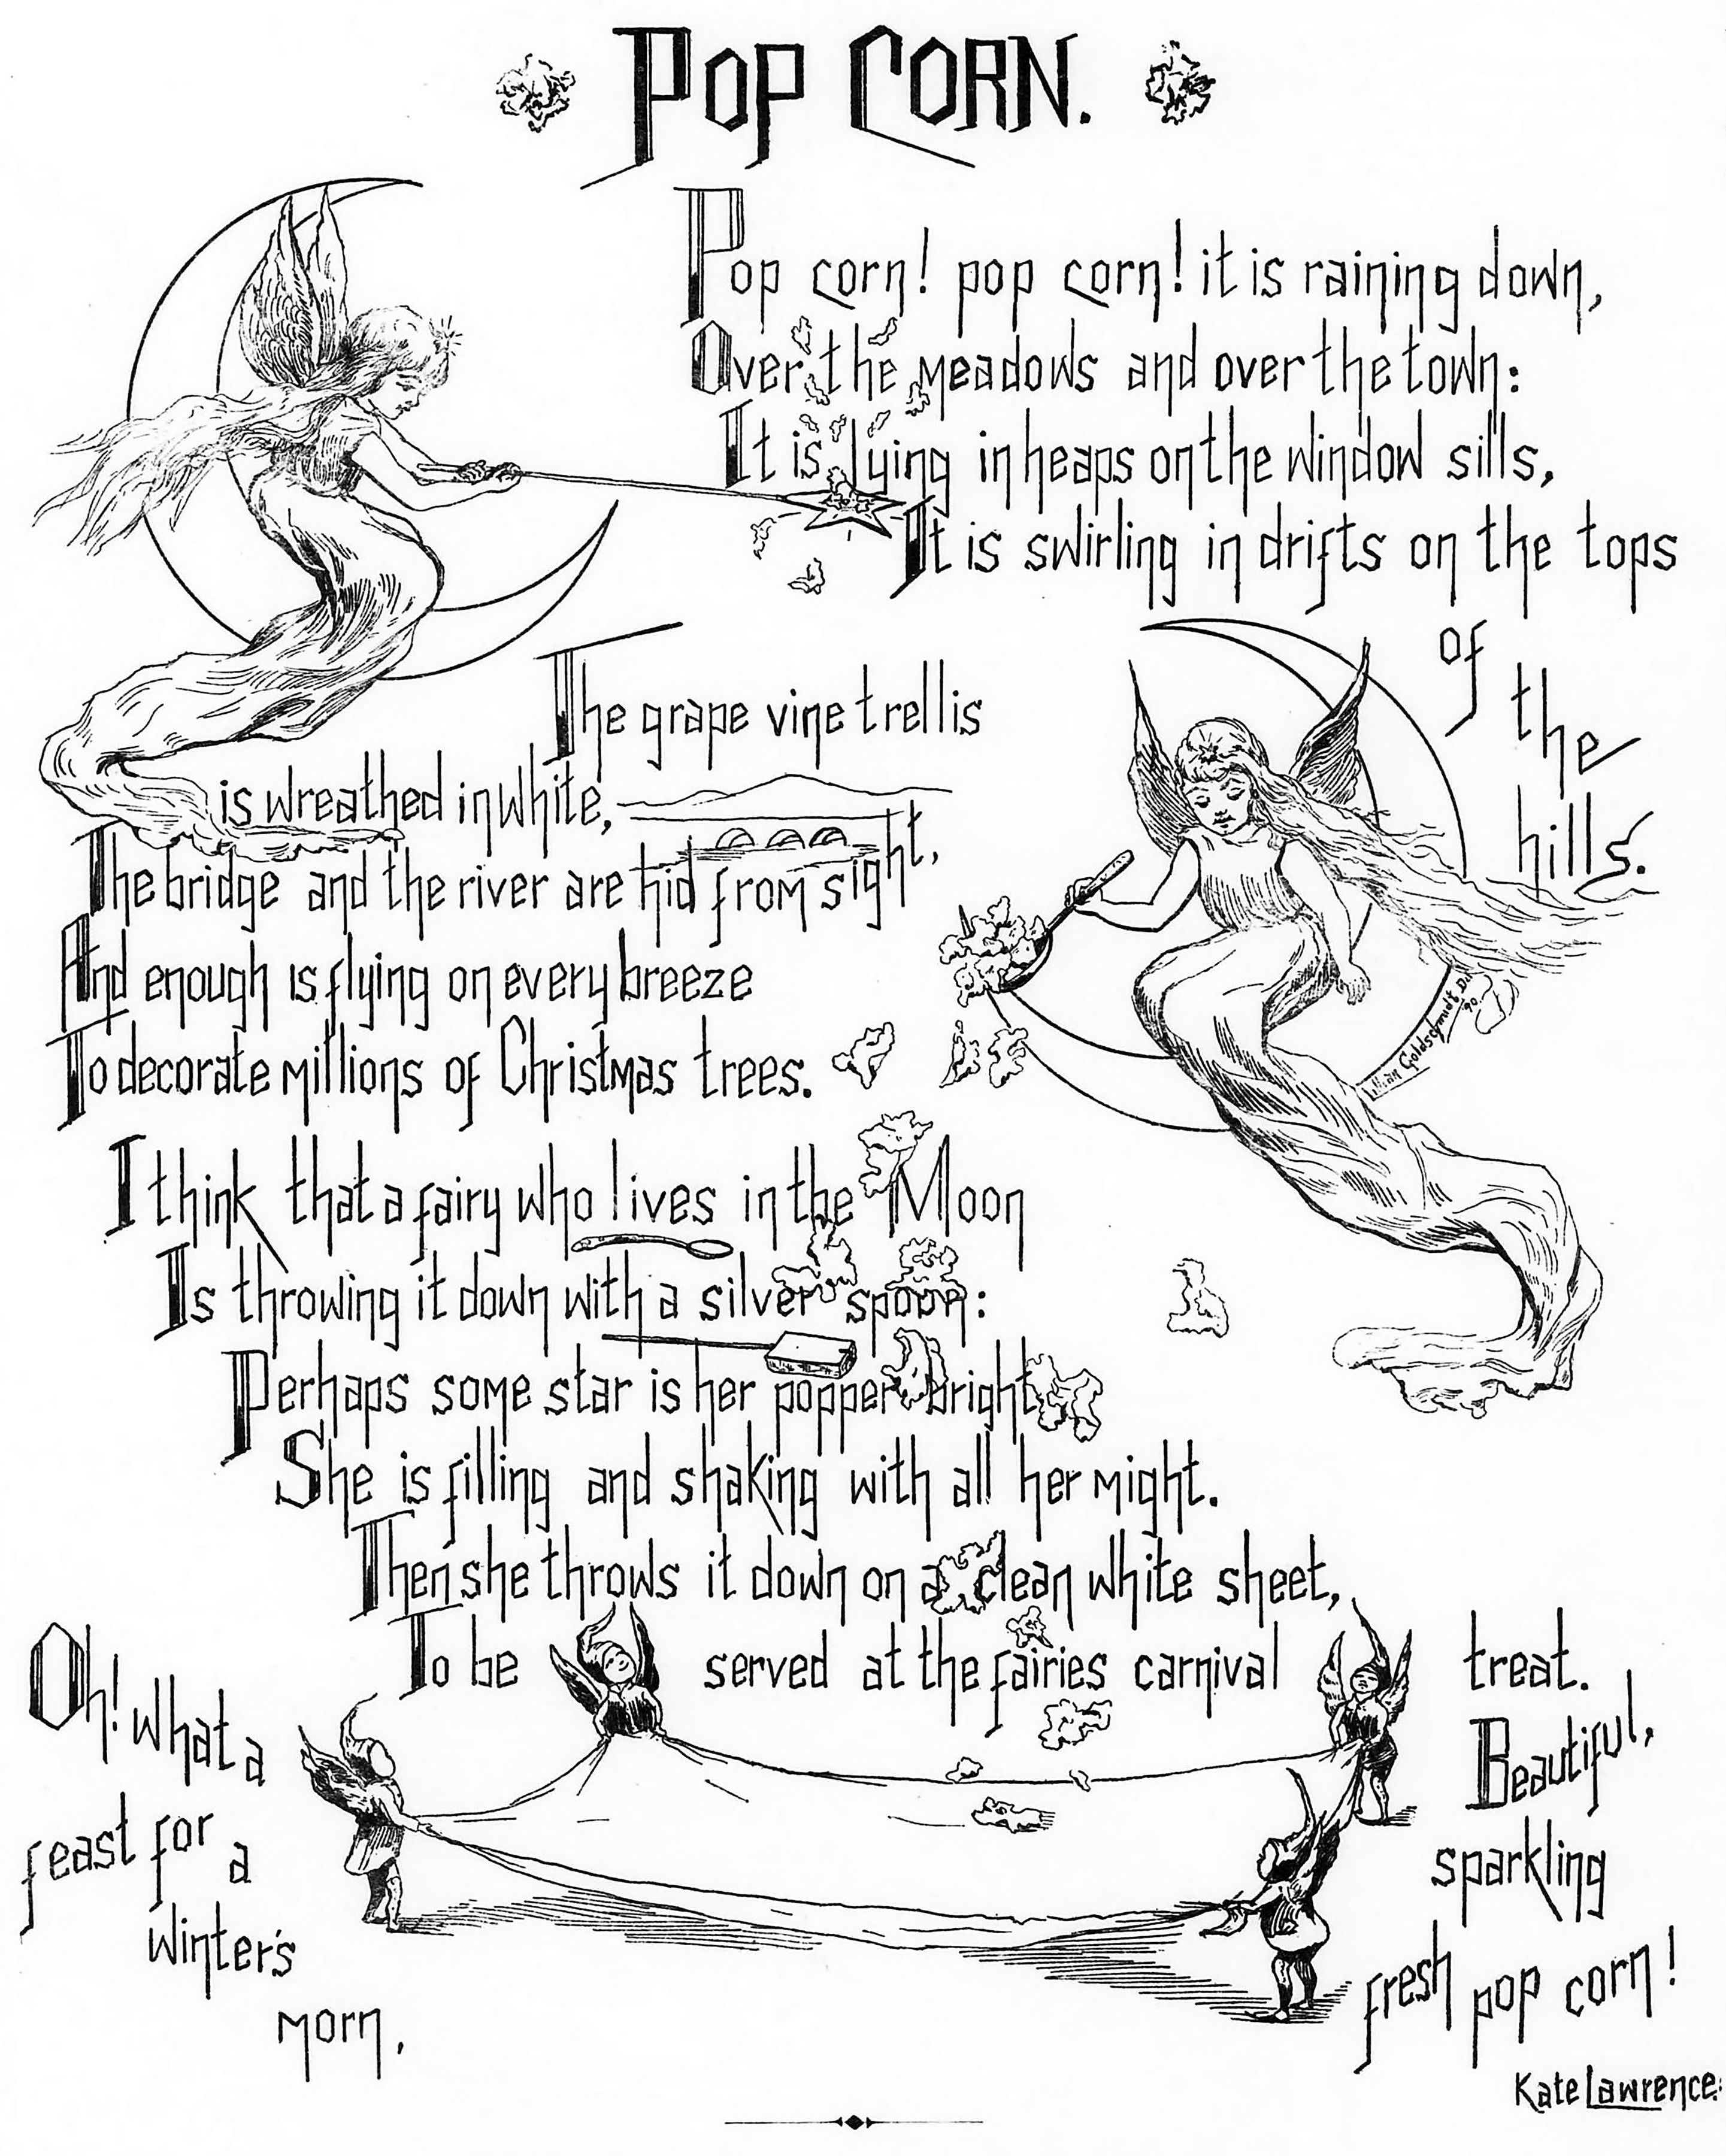 POP CORN.
Pop corn! pop corn! it is raining down,
Over the meadows and over the town:
It is lying in heaps on the window sills,
It is swirling in drifts on the tops
of
the
hills.
The grape vine trellis
is wreathed in white,
The bridge and the river are hid from sight,
And enough is flying on every breeze
To decorate millions of Christmas trees.
Goldschmidt Del
90.
I think that a fairy who lives in the Moon
Is throwing it down with a silver spoon:
Perhaps some star is her popper bright
She is filling and shaking with all her might.
Then she throws it down on a clean white sheet,
To be served at the fairies carnival treat.
Oh! what a
feast for a
winter's
morn,
Beautiful,
sparkling
fresh pop corn!
Kate Lawrence.